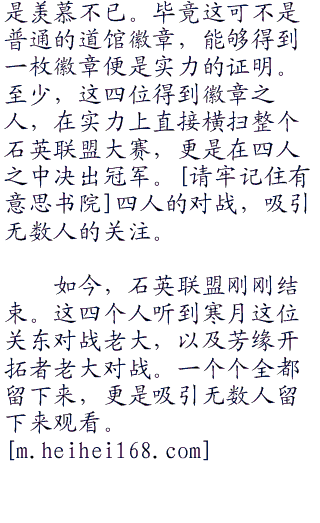 是羡慕不已。毕竟这可不是
普通的道馆徽章，能够得到
一枚徽章便是实力的证明。
至少，这四位得到徽章之
人，在实力上直接横扫整个
石英联盟大赛，更是在四人
之中决出冠军。[请牢记住有
意思书院]四人的对战，吸引
无数人的关注。
如今，石英联盟刚刚结
束。这四个人听到寒月这位
关东对战老大，以及芳缘开
拓者老大对战。一个个全都
留下来，更是吸引无数人留
下来观看。
[m.heihei168.com]